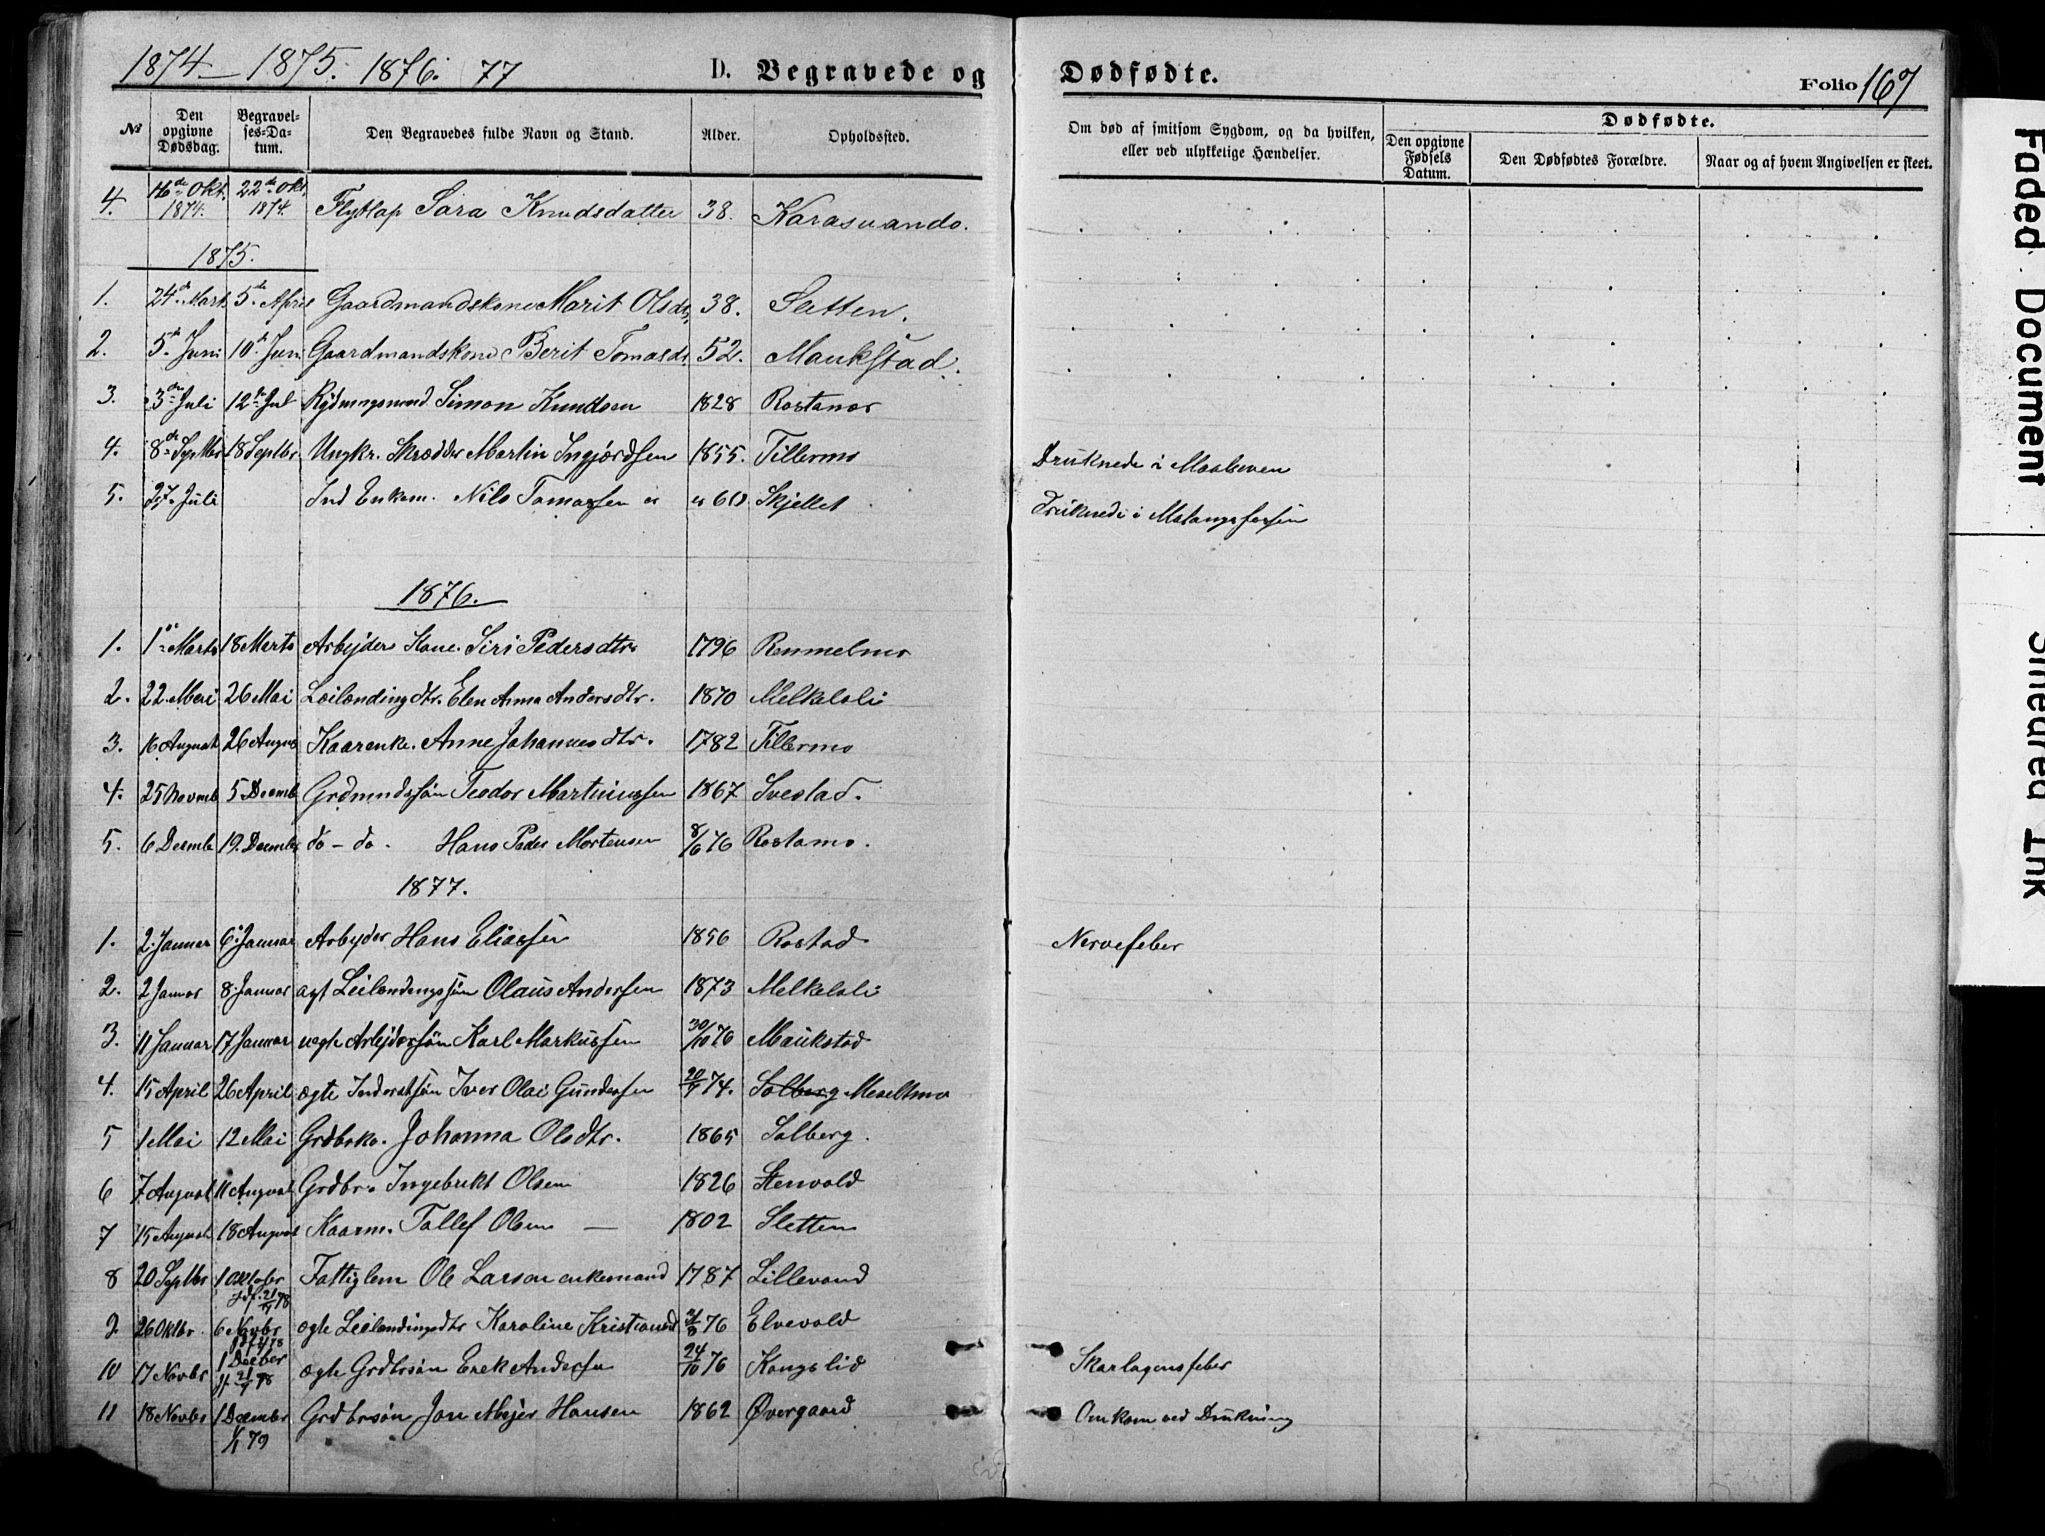 1874 – 1875. 1876. 77 D. Begravede og Dødfødte. Folio 167
№ Den opgivne Dødsdag. Begravelses-Datum. Den Begravedes fulde Navn og Stand. Alder. Opholdssted. Om død af smitsom Sygdom, og da hvilken, eller ved ulykkelige Hændelser. Dødfødte. Den opgivne Fødsels Datum. Den Dødfødtes Forældre. Naar og af hvem Angivelsen er skeet.
4. 16de Okt. 1874. 22de Okt. 1874. Flytlap Sara Knudsdatter 38. Karasuando.
1875.
1. 24de Mart. 5te April Gaardmandskone Marit Olsdr. 38. Sletten.
2. 5te Juni 10de Juni Gaardmandskone Berit Tomasdr. 52. Maukstad.
3. 3die Juli 12te Jul Rydningsmand Simon Knudsen 1828 Rostamo
4. 8de Septbr 18 Septbr. Ungkr. Skrædder Martin Ingjørdsen 1855. Tillermo Druknede i Maalsven
5. 27. Juli Ind Enkem. Nils Tomassen 60 Skjellet Druknede i Malangsfossen
1876.
1. 1ste Marts 18 Marts Arbejder Kone. Siri Pedersdtr. 1796 Rummelmo
2. 22. Mai 26 Mai Leilendingdtr. Elen Anna Andersdtr. 1870 Melkeloli
3. 16 August 26 August Kaarenke. Anne Johannesdtr. 1782 Tillermo
4. 25 Novmb 5 Decemb Grdmndssøn Teodor Martinussen 1867 Svestad.
5. 6 Decmb 19. Decmbr do – do. Hans Peder Mortensen 8/6 76 Rostamo.
1877.
1. 2. Januar 6. Januar Arbejder Hans Eliassen 1856 Rostad Nervefeber
2. 2 Januar 8. Januar ægt Leilendingssøn Olaus Andersen 1873 Melkeloli
3. 11 Januar 17 Januar uægte Arbejdersøn Karl Markussen 30/10 76 Maukstad
4. 15 April 26 April ægte Inderstsøn Iver Olai Gundersen 20/7 74. Solberg Moseltmo
5 1 Mai 12 Mai Grdbrko. Johanna Olsdtr. 1865 Solberg.
6 7 August 11 August Grdbr. Ingebrikt Olsen 1826 Stenvold
7 15 August 18 August Kaarm. Tollef Olsen — 1802 Sletten
8 20 Septbr 1 Oktober jdf. 21/4 78 Fattiglem Ole Larsen enkemand 1787 Lillevand
9. 26 Oktbr. 6 Novbr ægte Leilendingsdtr Karoline Kristiansd 76 Elvevold
10 17 Novbr 1 Decber jf. 21/4 78 ægte Grdbrsøn Erek Andersen 24/10 76 Kongslid Skarlagensfeber
11 18 Novbr 1 Decembr 1/1 79 Grdbrsøn Jon Mejer Hansen 1862 Øvergaard Omkom ved Drukning
Faded Document
Smeared Ink